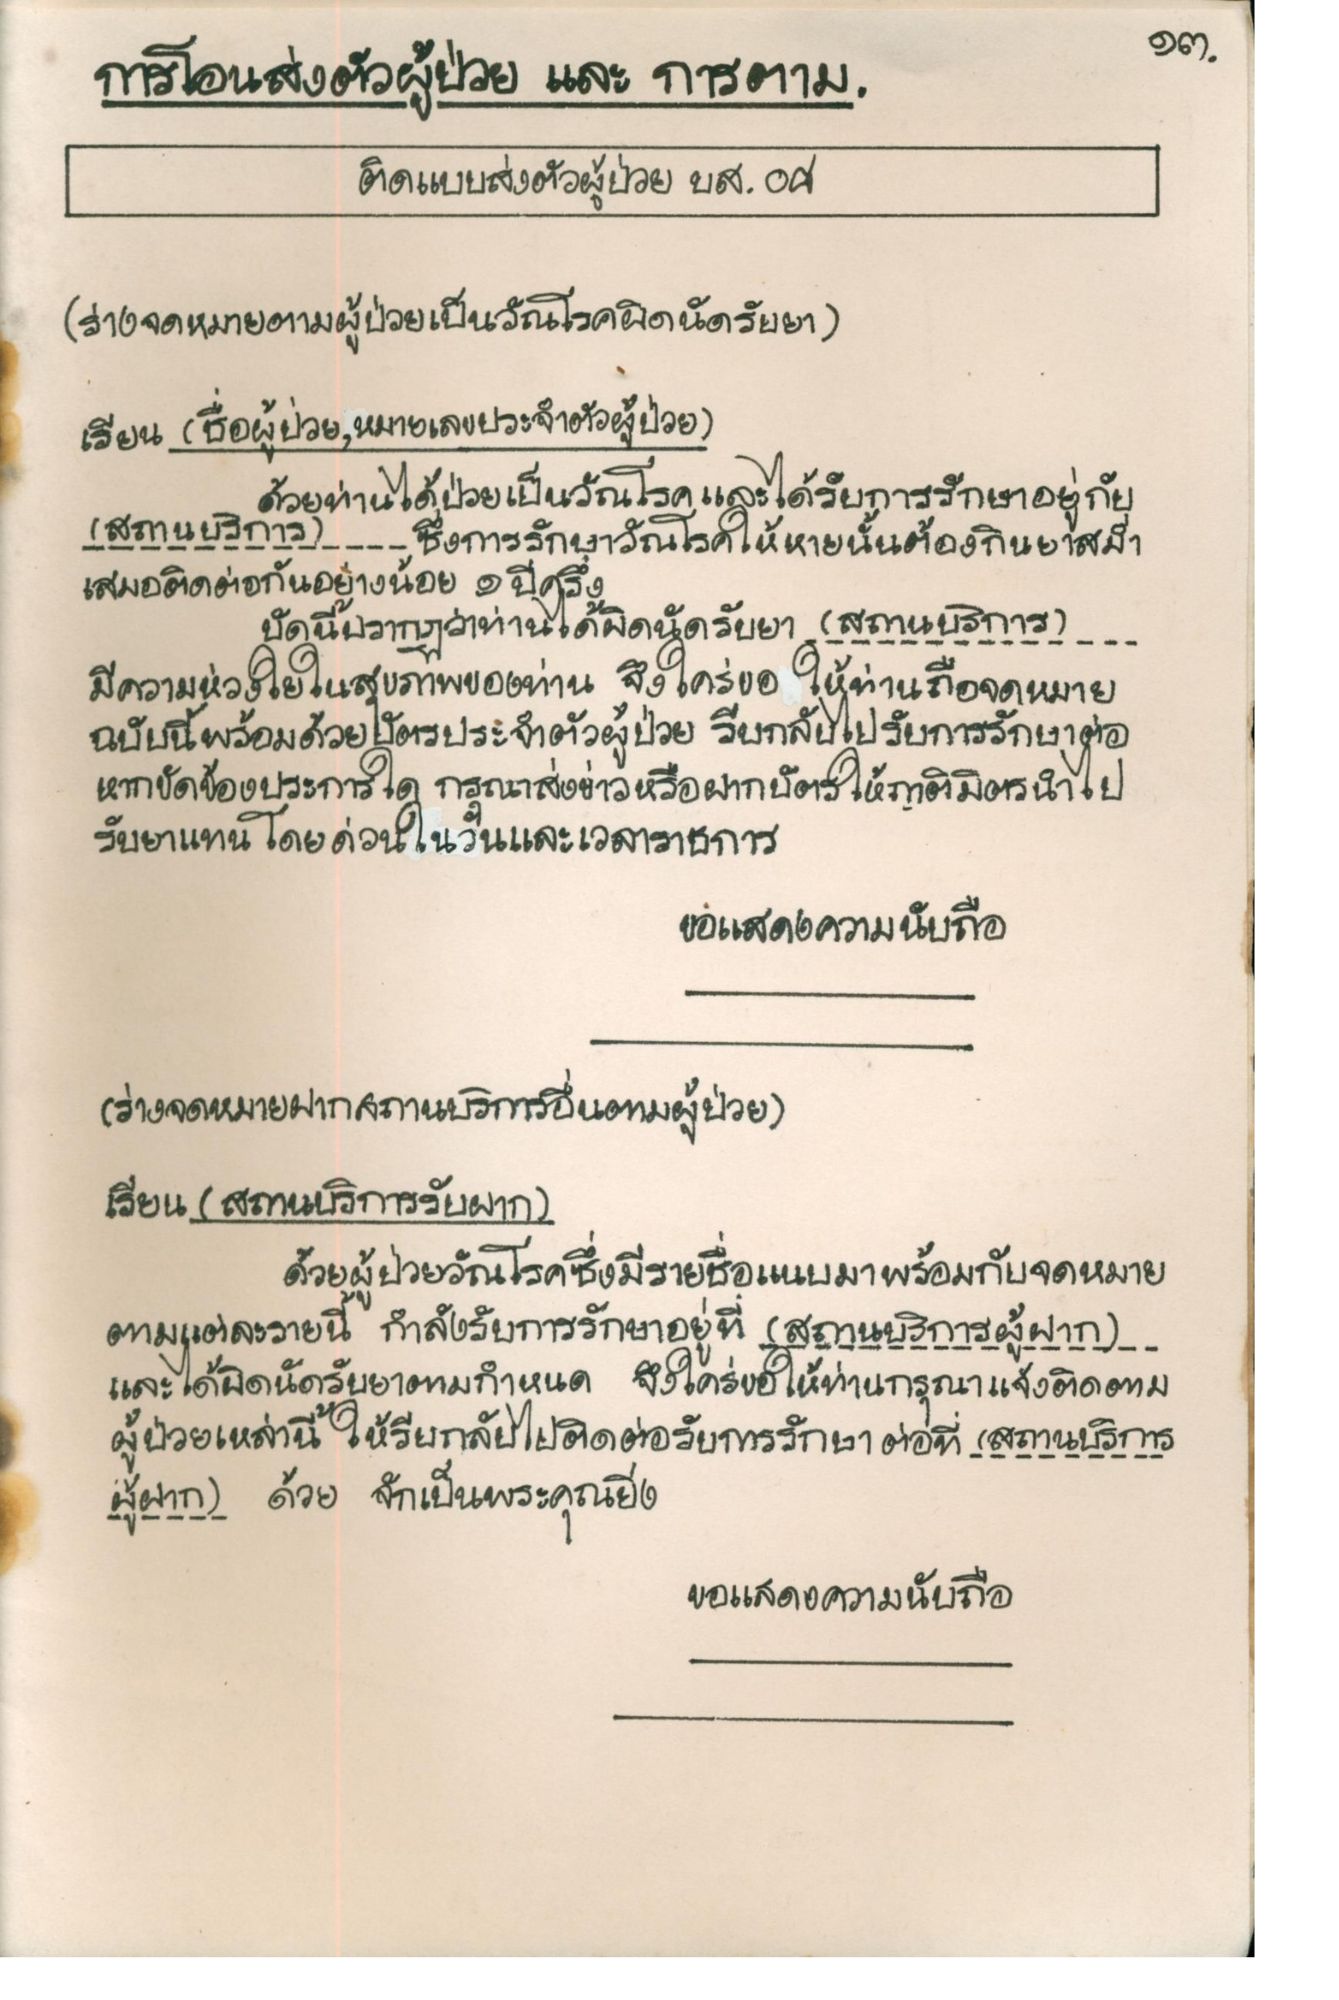 ๑๓.
การโอนส่งตัวผู้ป่วย และ การตาม.
ติดแบบส่งตัวผู้ป่วย บส. ๐๙
(ร่างจดหมายตามผู้ป่วยเป็นวัณโรคผิดนัดรับยา)
เรียน (ชื่อผู้ป่วย,หมายเลขประจำตัวผู้ป่วย)
ด้วยท่านได้ป่วยเป็นวัณโรคและได้รับการรักษาอยู่กับ
(สถานบริการ) ซึ่งการรักษาวัณโรคให้หายนั้นต้องกินยาสม่ำ
เสมอติดต่อกันอย่างน้อย ๑ ปีครึ่ง
บัดนี้ปรากฏว่าท่านได้ผิดนัดรับยา (สถานบริการ)
มีความห่วงใยในสุขภาพของท่าน จึงใคร่ขอ ให้ท่านถือจดหมาย
ฉบับนี้พร้อมด้วยบัตรประจำตัวผู้ป่วย รีบกลับไปรับการรักษาต่อ
หากขัดข้องประการใด กรุณาส่งข่าวหรือฝากบัตรให้ญาติมิตรนำไป
รับยาแทนโดยด่วนในวันและเวลาราชการ
ขอแสดงความนับถือ
(ร่างจดหมายฝากสถานบริการอื่นตามผู้ป่วย)
เรียน (สถานบริการรับฝาก)
ด้วยผู้ป่วยวัณโรคซึ่งมีรายชื่อแนบมาพร้อมกับจดหมาย
ตามแต่ละรายนี้ กำลังรับการรักษาอยู่ที่ (สถานบริการผู้ฝาก)
และได้ผิดนัดรับยาตามกำหนด จึงใคร่ขอให้ท่านกรุณาแจ้งติดตาม
ผู้ป่วยเหล่านี้ ให้รีบกลับไปติดต่อรับการรักษา ต่อที่ (สถานบริการ
ผู้ฝาก) ด้วย จักเป็นพระคุณยิ่ง
ขอแสดงความนับถือ